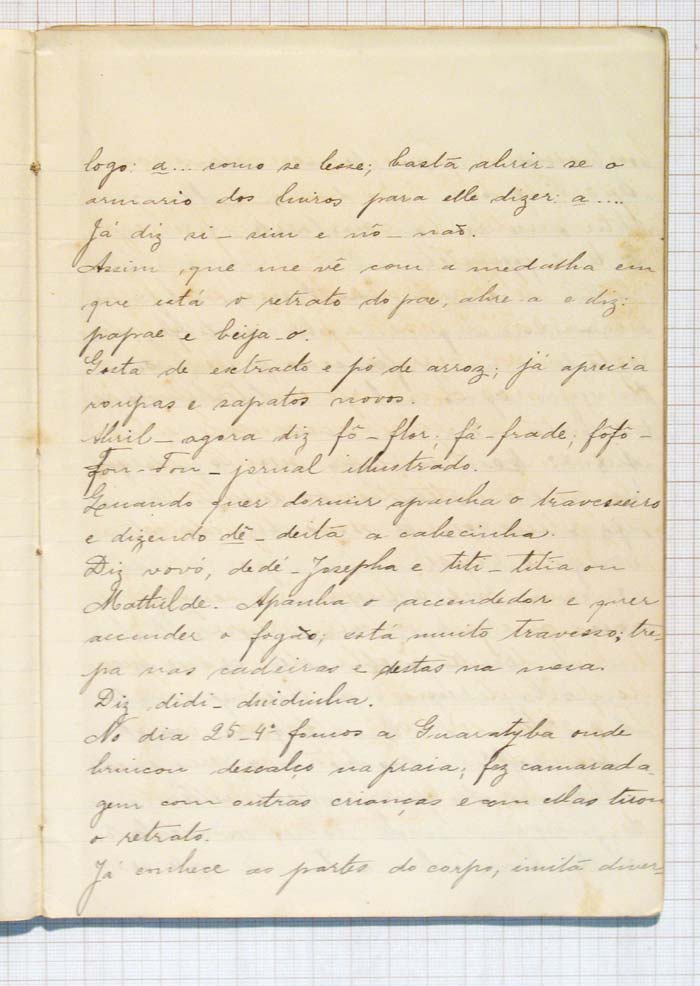 logo: a... como se lesse; bastã abrir-se o
armario dos livros para elle dizer: a....
Já diz si-sim e nô-naõ.
Assim que me vê com a medalha em
que está o retrato do pae, abre-a e diz:
papae e beija-o.
Gosta de extracto e pó de arroz; já aprecia
roupas e sapatos novos.
Abril- agora diz fô-flor; fá-frade; fôfô-
Fon-Fon- jornal illustrado.
Quando quer dormir apanha o travesseiro
e dizendo dê- deita a cabecinha.
Diz vovó, dedé-Josepha e titi-titia ou
Mathilde. Apanha o accendedor e quer
accender o fogão; está muito travesso; tre-
pa nas cadeiras e destas na mesa.
Diz didi-duidinha.
No dia 25-4º fomos a Guaratyba onde
brincou descalco na praia; fez camarada-
gem com outras crianças e com ellas tirou
o retrato.
Já conhece as partes do corpo, imitã diver-